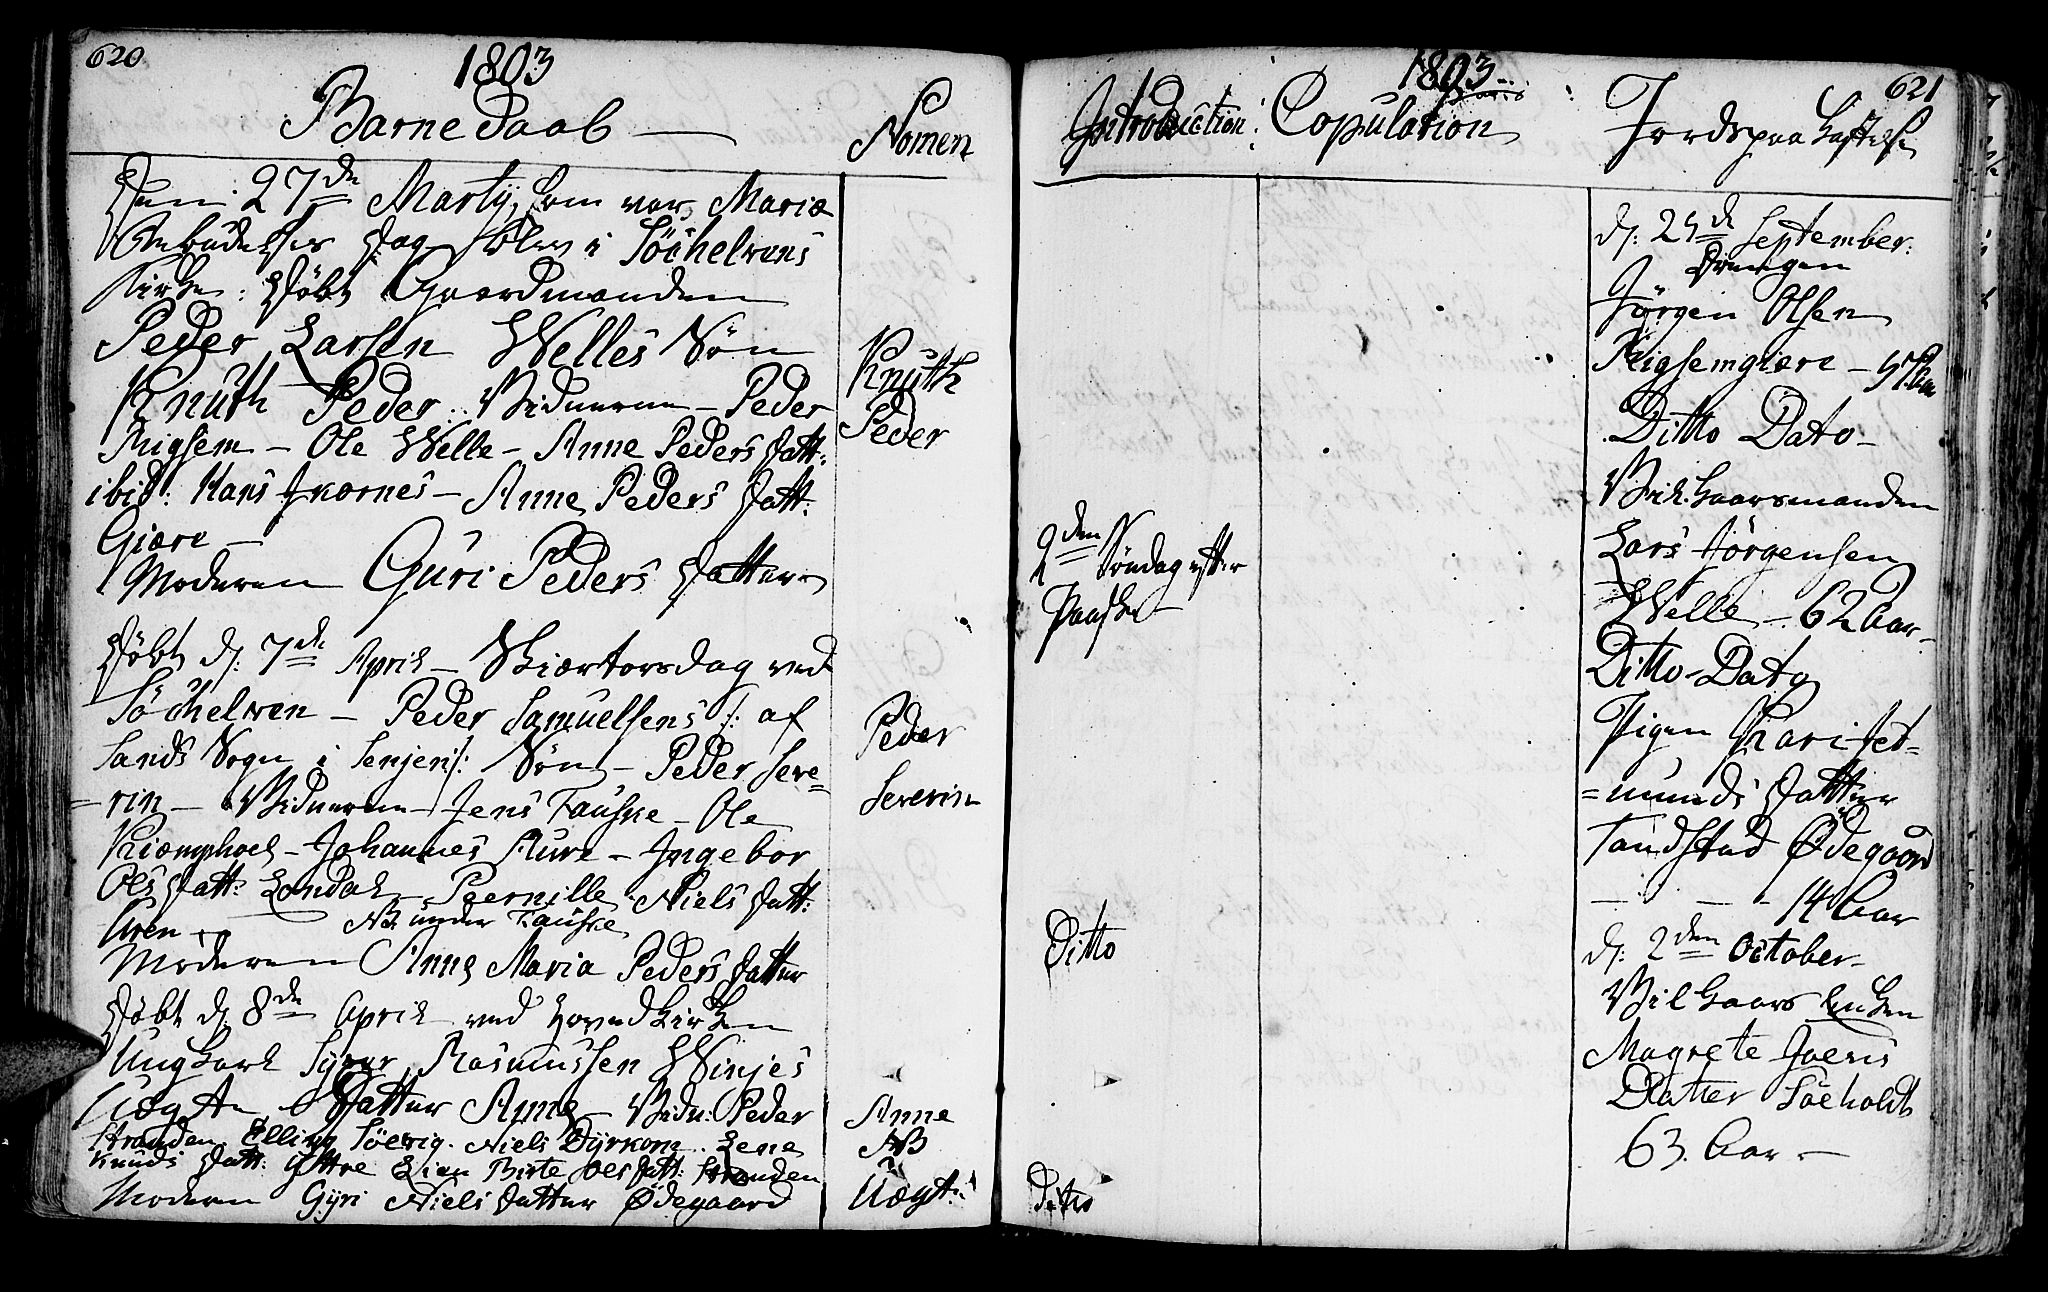 620
1803
Barne Daab
Nomen
Den 27de Martÿ, som var Mariæ
Bebudelses Dag blev i Söchelvens
Kirke: Döbt Gaardmanden
Peder Larsen Welles Sön
Knuth Peder .. Vidnerne – Peder
Rigsem – Ole Welle – Anne Peders Datt:
ibid: Hans – Anne Peders Datt:
Giære –
Moderen Guri Peders Datter
Knuth
Peder
Döbt d: 7de April – Skiærtorsdag ved
Söchelven – Peder Samuelsens /: af
Sands Sogn i Senjen :/ Sön – Peder Seve=
=rin – Vidnerne – Jens Fauske – Ole
Kiæmphoel – Johannes Aure – Ingebor
Ols Datt: Londal – Pernille Niels Datt:
Uren
NB under Fauske
Moderen Anne Maria Peders Datter
Peder
Severin
Döbt d: 8de April ved Hovedkirken
Ungkarl Syver Rasmussen Winjes
Uægte Datter Anne – Vidn: Peder
Stranden. Elling Söevig. Niels Dyrkorn .. Lene
Knuds Datt: Birte Ols Datt: Stranden
Moderen Gÿri Niels Datter Ödegaard
Anne
NB
Uægt:
621
1803
Introduction: Copulation
Jordspaa Kastelse
2den Söndag efter
Paaske
Ditto
Ditto
d: 25de September.
Drengen
Jörgen Olsen
Rigsemgiære –
Ditto Dato –
Vilkaarsmanden
Lars Jörgensen
Welle – 62 Aar –
Ditto Dato
Pigen Kari Jet=
=munds Datter
Tandstad Ödegaard
– – – 14 Aar
d: 2den October –
Vilkaars Enken
Magrete Joens
Datter Söeholdt
63. Aar –